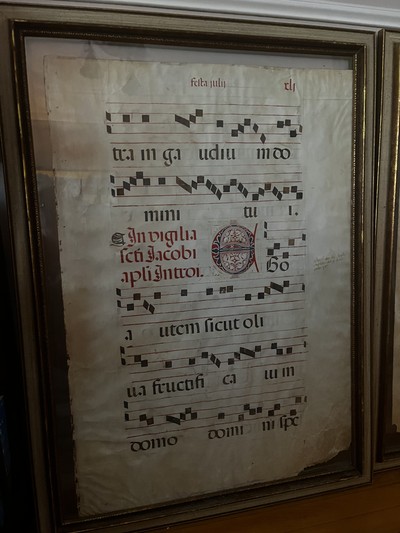 festa iulii xlj
tra in ga udiu m do
mini tu i.
In vigilia
scti Jacobi
apli Introi.
E Go
a utem sicut oli
ua fructifi ca ui in
domo domi ni spe